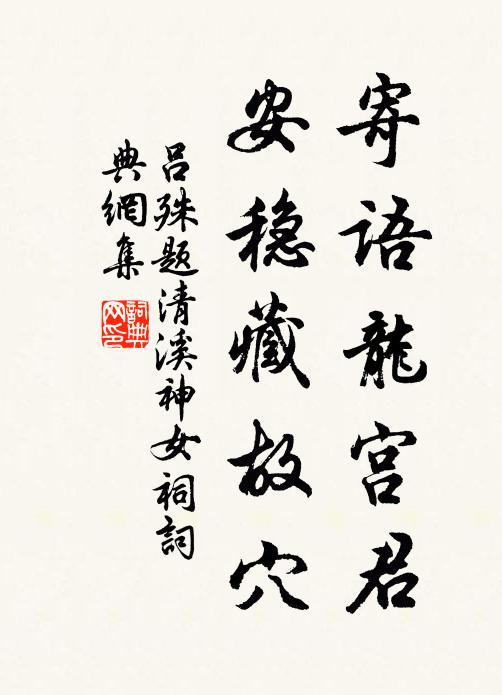 寄语龍宫君
安稳藏故穴
吕殊题清溪神女祠詞
典網集
詞典網印